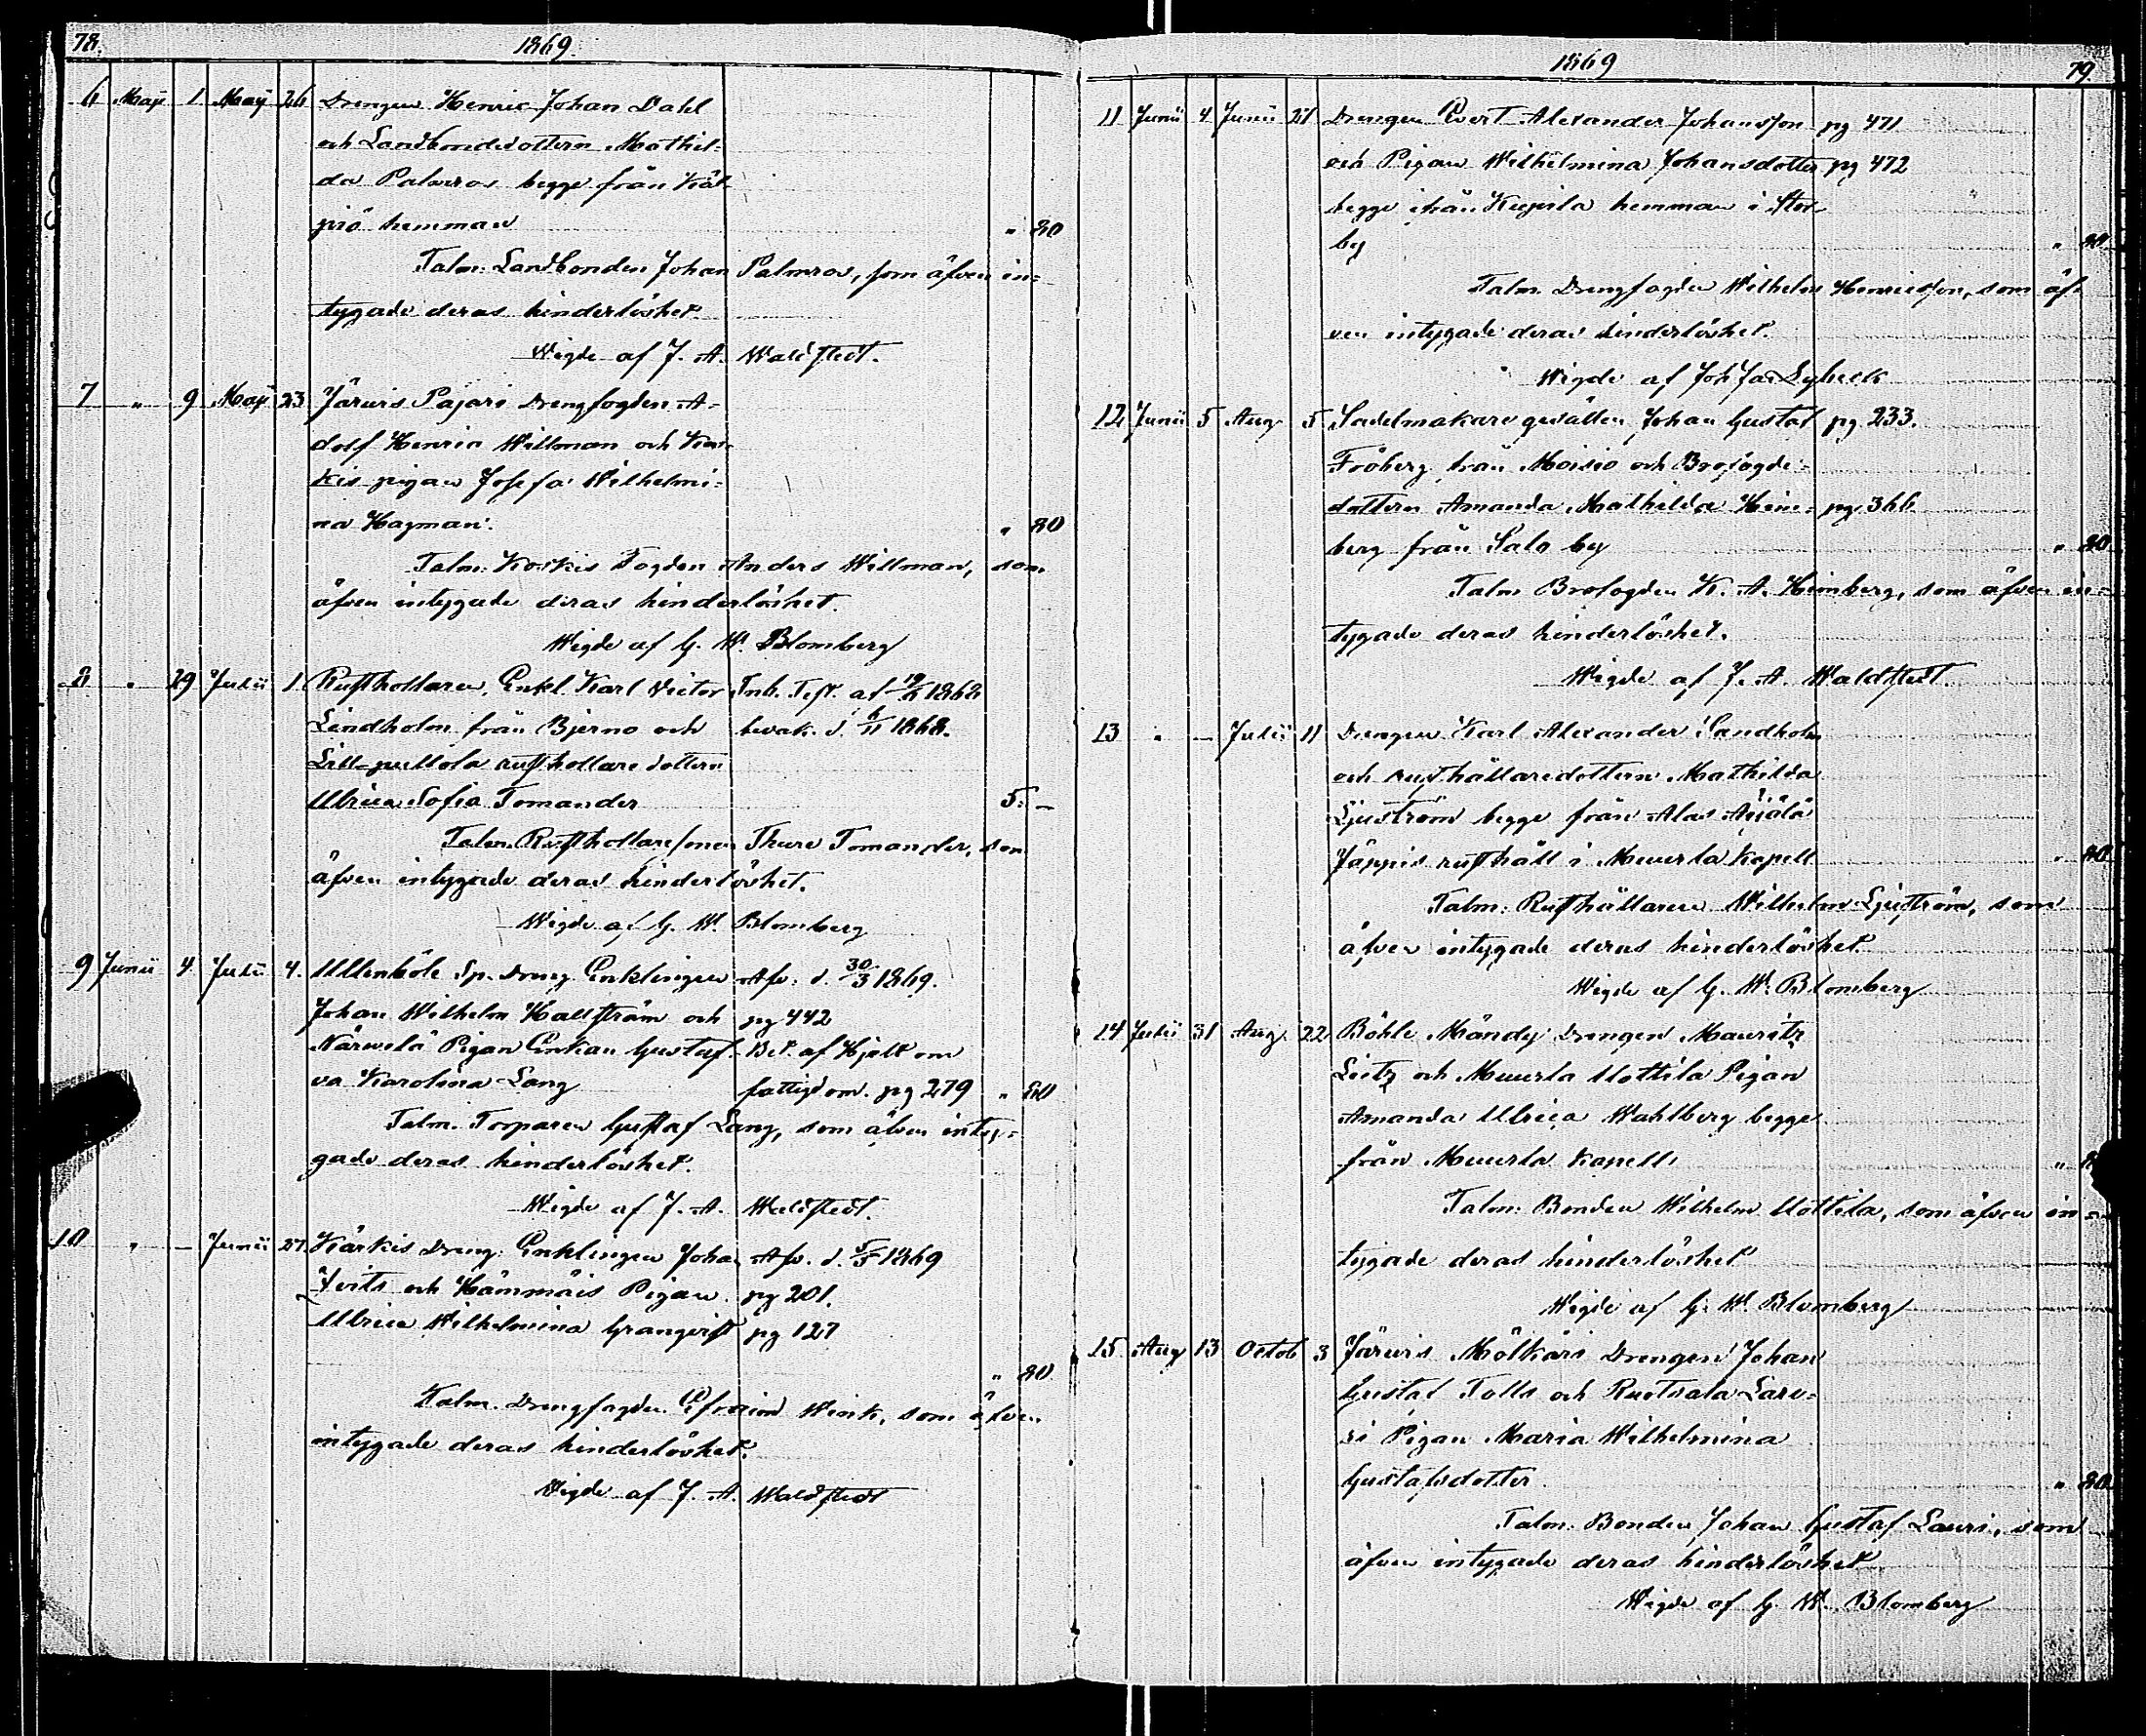 78.
1869.
6 Maji 1 Maji 26 Drengen Henric Johan Dahl
och Landbondedottern Mathil=
da Palmros begge från Kär
piö hemman " 80
Talm. Landbonden Johan Palmros, som äfven in=
tygade deras hinderlöshet
Wigde af J. A. Waldstedt.
7 " 9 Maji 23 Järvis Pajari Drengfogden A=
dolf Henric Willman och Kos=
kis pigan Josefa Wilhelmi=
na Hagman. " 80
Talm. Koskis Fogden Anders Willman, som
äfven intygade deras hinderlöshet.
Wigde af G. W. Blomberg
8 " 29 Julii 1 Rusthollaren, Enkl. Karl Victor Inb. Test. af 1868
Lindholm från Bjerno och bevak. d. 1868.
Lill-pullola rusthollare dottern
Ulrica Sofia Tomander 5. -
Talm. Rusthollaresonen Thure Tomander, som
äfven intygade deras hinderlöshet.
Wigde af G. W. Blomberg
9 Junii 4 Julii 4. Ullenböle Sp. Dreng Enklingen Afv. d. 30/3 1869.
Johan Wilhelm Hallström och pg 442
Närvelä Pigan Enkan Gustaf- Bet. af Hjelt om
va Karolina Lang fattigdom. pg 279 " 80
Talm. Torparen Gustaf Lang, som äfven inty=
gade deras hinderlöshet.
Wigde af J. A. Waldstedt.
10 " - Junii 27. Kärkis Dreng Enklingen Johan Afv. d. 1869
och Hämmäis Pigan pg 201.
Ulrica Wilhelmina Granqvist pg 127
" 80
Talm. Drengfogden Efraim Wink, som äfven
intygade deras hinderlöshet.
Wigde af J. A. Waldstedt
1869
79
11 Junii 4 Junii 27 Drengen Evert Alexander Johansson pg 471
och Pigan Wilhelmina Johansdotter pg 472
begge ifrån hemman i Stor
by " 80
Talm. Drengfogden Wilhelm Henricsson, som äf=
ven intygade deras hinderlöshet.
Wigde af Joh Jac Lybeck
12 Junii 5 Aug 5 Sadelmakare gesällen Johan Gustaf pg 233.
Fröberg från Moisio och Brofogde=
dottern Amanda Mathilda Heim= pg 366
berg från Salo by " 80
Talm Brofogden K. A. Heimberg, som äfven in=
tygade deras hinderlöshet.
Wigde af J. A. Waldstedt.
13 " - Julii 11 Drengen Karl Alexander Sandholm
och rusthållaredottern Mathilda
Ljuström begge från Alas Äijälä
Jäppis rusthåll i Muurla Kapell " 80
Talm. Rusthållaren Wilhelm Ljuström, som
äfven intygade deras hinderlöshet
Wigde af G. W. Blomberg
14 Julii 31 Aug. 22 Böhle Mändy Drengen Mauritz
Leitz och Muurla Uottila Pigan
Amanda Ulrica Wahlberg begge
från Muurla Kapell "
Talm. Bonden Wilhelm Uottila, som äfven in=
tygade deras hinderlöshet
Wigde af G. W. Blomberg
15 Aug 13 Octob 3 Järvis Mölkäri Drengen Johan
Gustaf Tolls och Ruotsala Lau=
ri Pigan Maria Wilhelmina
Gustafsdotter " 80
Talm. Bonden Johan Gustaf Lauri, som
äfven intygade deras hinderlöshet
Wigde af G. W. Blomberg